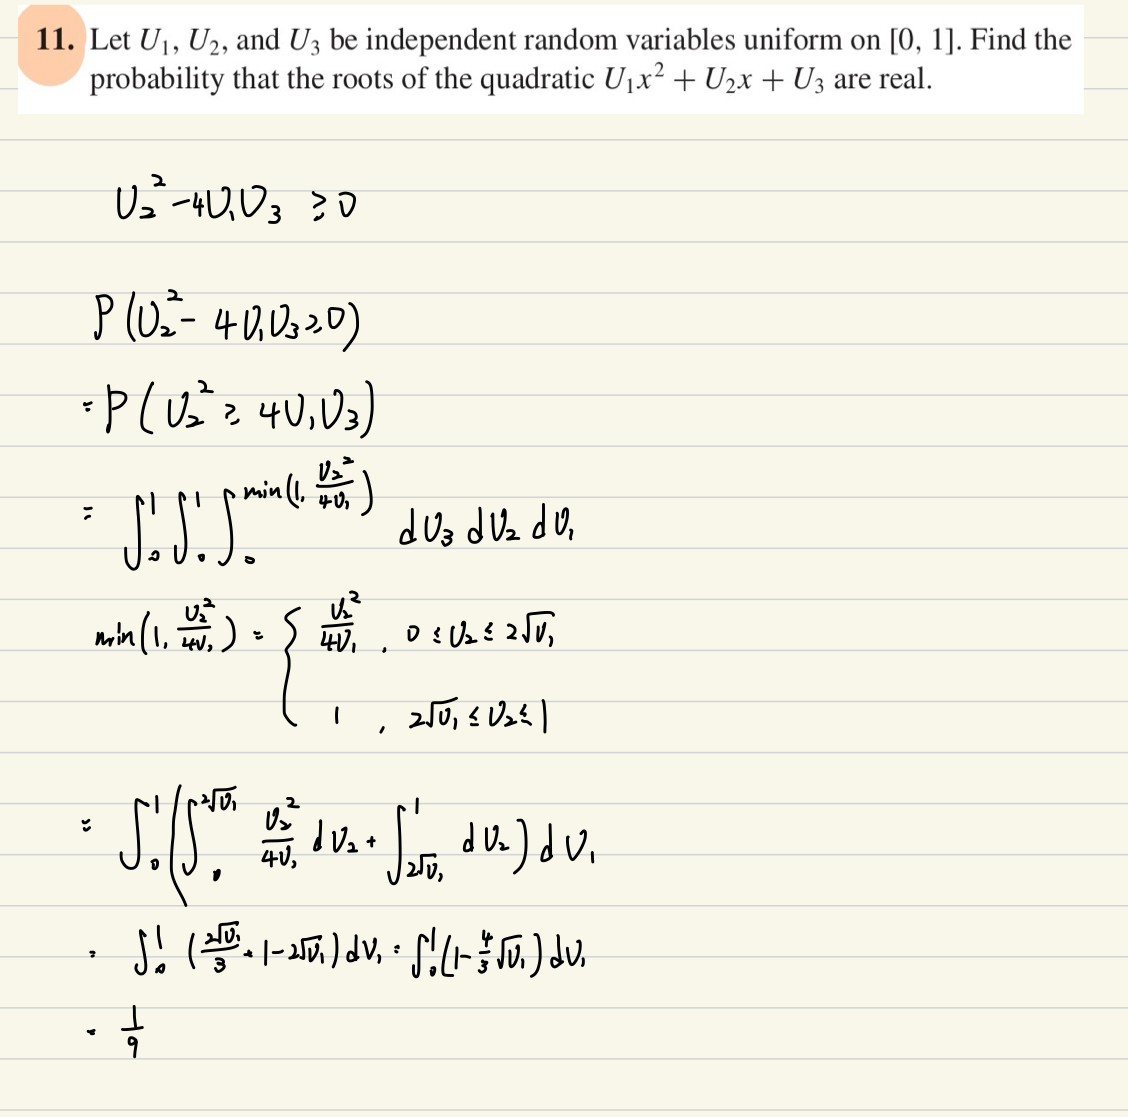 11. Let U₁, U₂, and U₃ be independent random variables uniform on [0, 1]. Find the
probability that the roots of the quadratic U₁x² + U₂x + U₃ are real.
U₂² - 4U₁U₃ ≥ 0
P(U₂² - 4U₁U₃ ≥ 0)
= P(U₂² ≥ 4U₁U₃)
= ∫₀¹ ∫₀¹ ∫₀^{min(1, U₂²/4U₁)} dU₃ dU₂ dU₁
min(1, U₂²/4U₁) = { U₂²/4U₁ , 0 ≤ U₂ ≤ 2√U₁
1 , 2√U₁ ≤ U₂ ≤ 1
= ∫₀¹ (∫₀^{2√U₁} U₂²/4U₁ dU₂ + ∫_{2√U₁}^1 dU₂) dU₁
= ∫₀¹ (2√U₁/3 + 1 - 2√U₁) dU₁ = ∫₀¹ (1 - 4/3 √U₁) dU₁
= 1/9